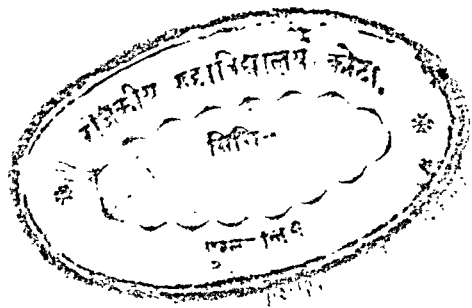 राजकीय महाविद्यालय कोटा.
मिति--